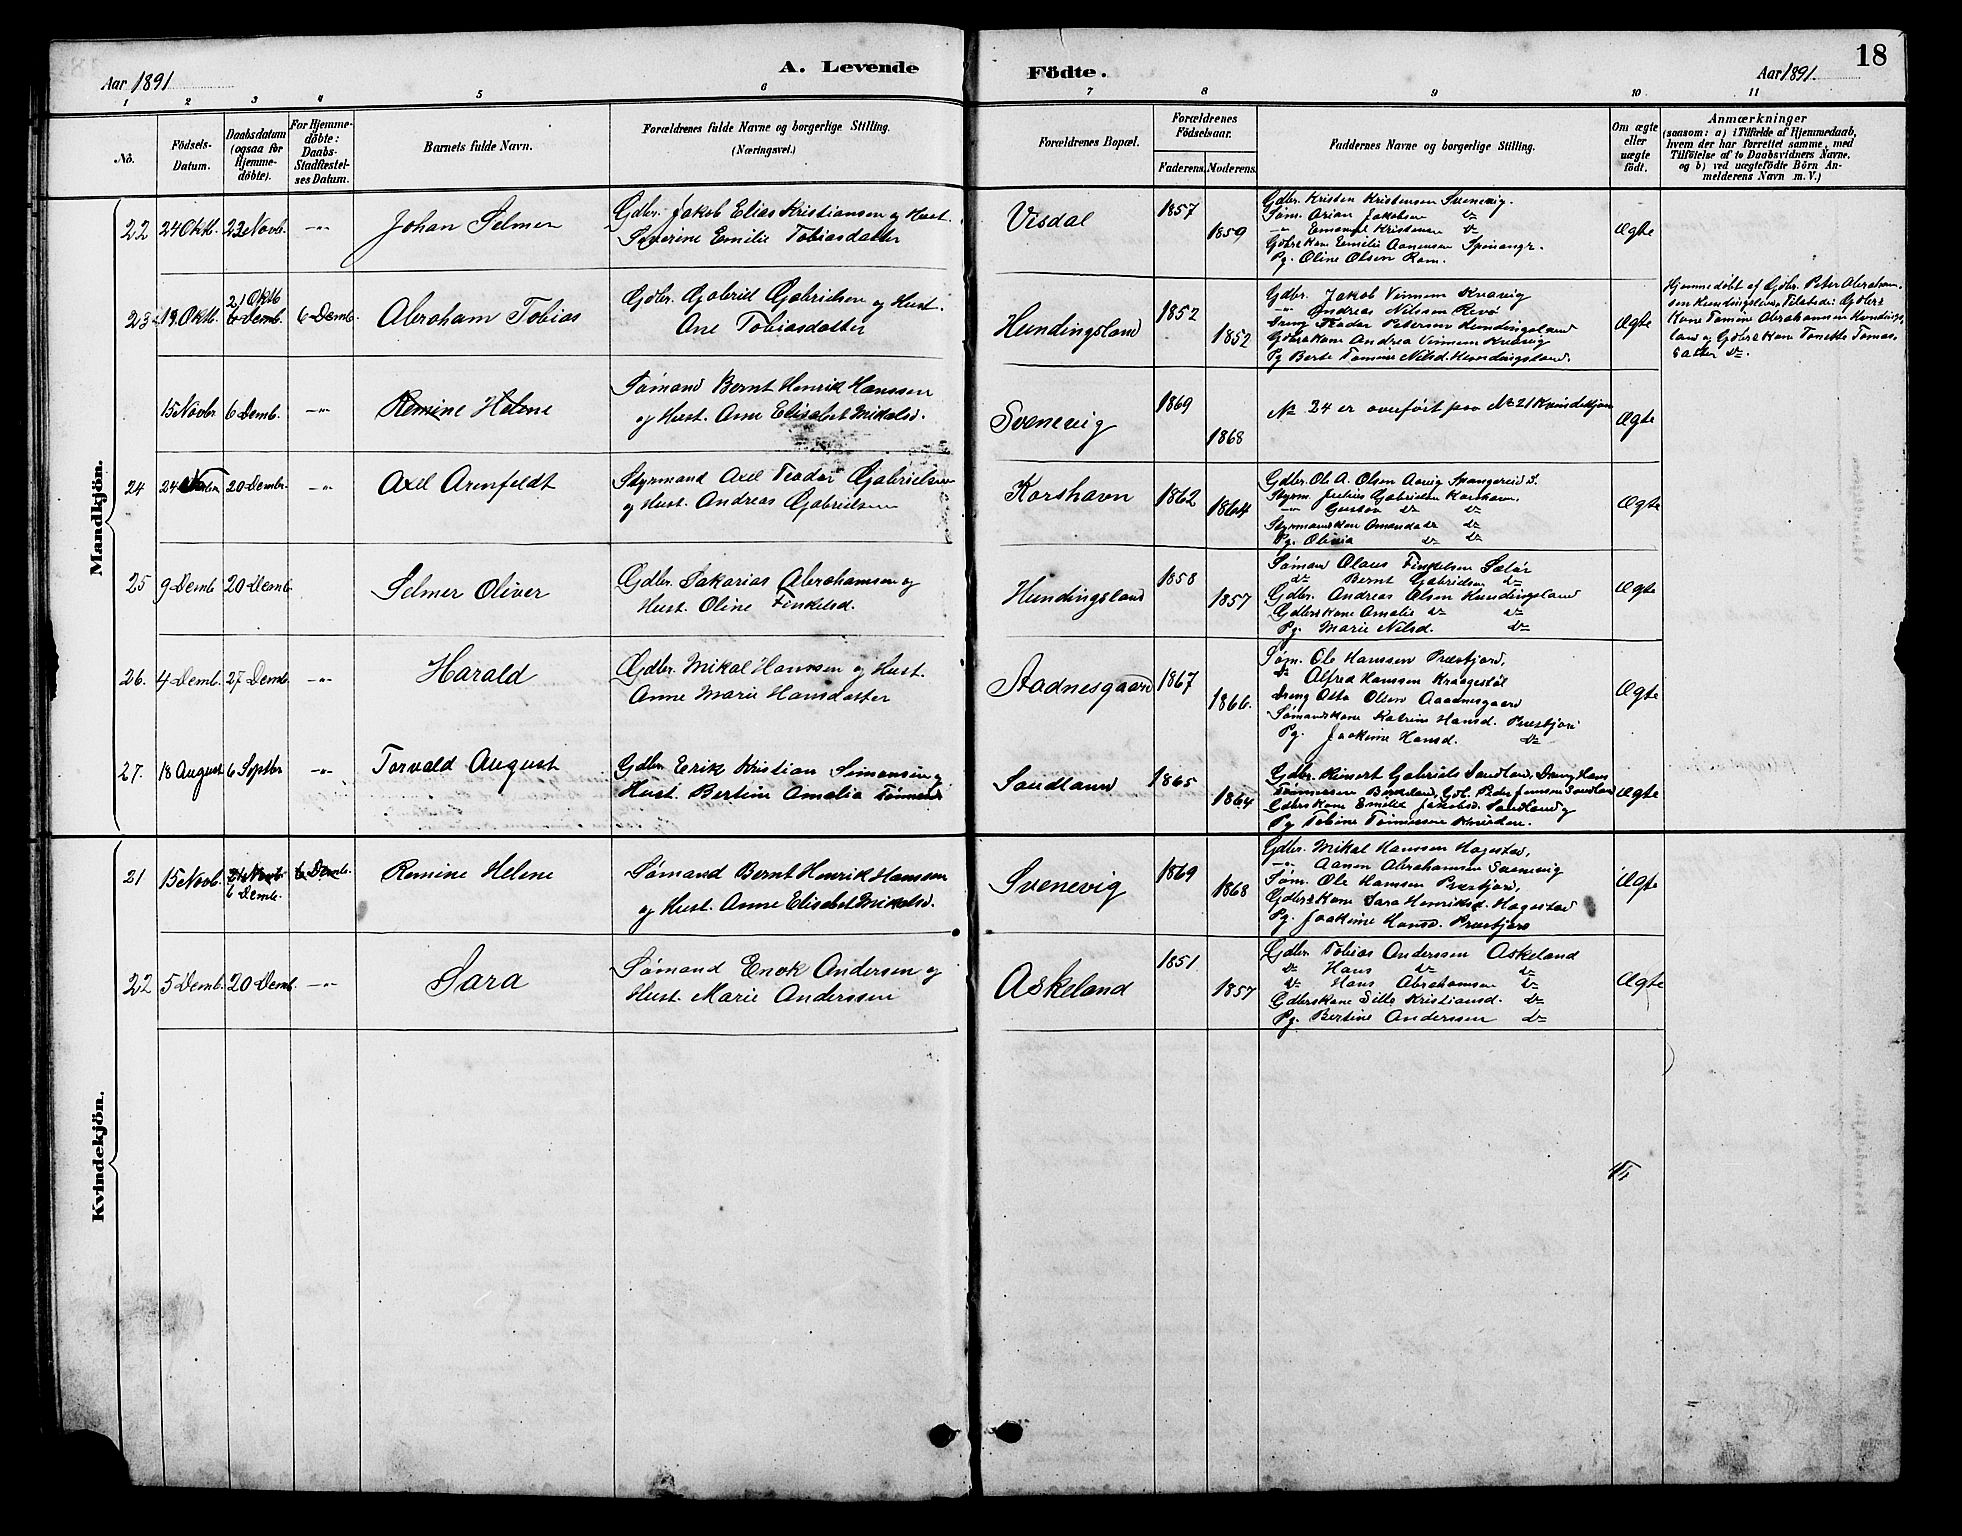 Aar 1891
A. Levende
Födte.
Aar 1891.
18
1 2 3 4 5 6 7 8 9 10 11
No.
Födsels-
Datum.
Daabsdatum
(ogsaa for
Hjemme-
döbte).
For Hjemme-
döbte:
Daabs-
Stadfæstel-
ses Datum.
Barnets fulde Navn.
Forældrenes fulde Navne og borgerlige Stilling.
(Næringsvei.)
Forældrenes Bopæl.
Forældrenes
Födselsaar.
Faderens. Moderens.
Faddernes Navne og borgerlige Stilling.
Om ægte
eller
uægte
födt.
Anmærkninger
(saasom: a) i Tilfælde af Hjemmedaab,
hvem der har forrettet samme, med
Tilföielse af to Daabsvidners Navne,
og b) ved uægtefödte Börn An-
melderens Navn m. V.)
Mandkjön.
22 24 Oktb. 22 Novb. -"- Johan Selmer
Gdbr. Jakob Elias Kristiansen og Hust.
Severine Emilie Tobiasdatter
Visdal 1857 1859
Gdbr. Kristen Kristensen Svenevig.
Søm. Arian Jakobsen do
-"- Emanuel Kristensen do
Gdbrskone Emilie Aanensen
Pg. Oline Olsen Ram.
Ægte
23 19 Oktb. 21 Oktb 6 Demb. 6 Demb Abraham Tobias
Gdbr. Gabriel Gabrielsen og Hust.
Ane Tobiasdatter
Hundingsland 1852 1852
Gdbr. Jakob Vinnem Kvavig
-"- Andreas Nilssen Revø
Dreng Teodor Petersen Hundingsland
Gdbrskone Andrea Vinnem Kvavig
Pg Berte Tomine Nilsd. Hundingsland.
Ægte
Hjemmedøbt af Gdbr. Peter Abraham-
sen Hundingsland, Tilstede: Gdbrs-
kone Tomine Abrahamsen Hundings-
land og Gdbrskone Tonette Tomas-
datter do.
15 Novbr 6 Demb. -"- Remine Helene
Sømand Bernt Henrik Hanssen
og Hust. Anne Elisabet Mikalsd.
Svenevig 1869 1868
No 24 er overført paa No 21 Kvindekjøn
Ægte
24 24 20 Dembr. -"- Axel Arenfeldt
Styrmand Axel Teodor Gabrielsen
og Hust. Andrea Gabrielsen
Korshavn 1862 1864
Gdbr. Ole A. Olsen Aavig Spangereid S.
Styrm. Julius Gabrielsen Korshavn.
-"- Gustav do do
Styrmandskone Amanda do do
Pg. Olivia do do
Ægte
25 9 Demb 20 Demb. Selmer Oliver
Gdbr. Sakarias Abrahamsen og
Hust. Oline Finkelsd.
Hundingsland 1858 1857
Sømand Olaus Finkelsen Sælør
do Bernt Gabrielsen do
Gdbr. Andreas Olsen Hundingsland
Gdbrskone Amalie do do
Pg. Marie Nilsd. do
Ægte
26. 4 Demb. 27 Demb. -"- Harald
Gdbr. Mikal Hanssen og Hust.
Anne Marie Hansdatter
Stadnesgaard 1867 1866.
Søm. Ole Hanssen Præstjord,
do Alfred Hanssen Kraagestøl
Dreng Otto Olsen
Sømandskone Katrine Hansd. Præstjord
Pg. Joakime Hansd. do
Ægte
27. 18 August 6 Septbr -"- Torvald August
Gdbr. Erik Kristian Simonsen og
Hust. Bertine Amalia Tønnesd.
Sandland 1865 1864
Gdbr. Reinert Gabriels Sandland, Dreng Hans
Tønnessen Birkeland, Gdb. Peder Jenssen Sandland
Gdbrskone Emilie Jakobsd. Sandland og
Pg Tobine Tønnessen
Ægte
Kvindekjön.
21 15 Novb. 21 Novb. 6 Demb. 6 Demb. Remine Helene
Sømand Bernt Henrik Hanssen
og Hust. Anne Elisabet Mikalsd.
Svenevig 1869 1868
Gdbr. Mikal Hanssen Hagestad,
-"- Aanen Abrahamsen Svenevig
Søm. Ole Hanssen Præstjord,
Gdbrskone Sara Henriksd. Hagestad
Pg. Joakime Hansd. Præstjord
Ægte
22 5 Demb. 20 Demb. -"- Sara
Sømand Enok Andersen og
Hust. Marie Anderssen
Askeland 1851 1857
Gdbr. Tobias Anderssen Askeland
do Hans do do
do Hans Abrahamsen do
Gdbrskone Sille Kristiansd. do
Pg. Bertine Anderssen do
Ægte